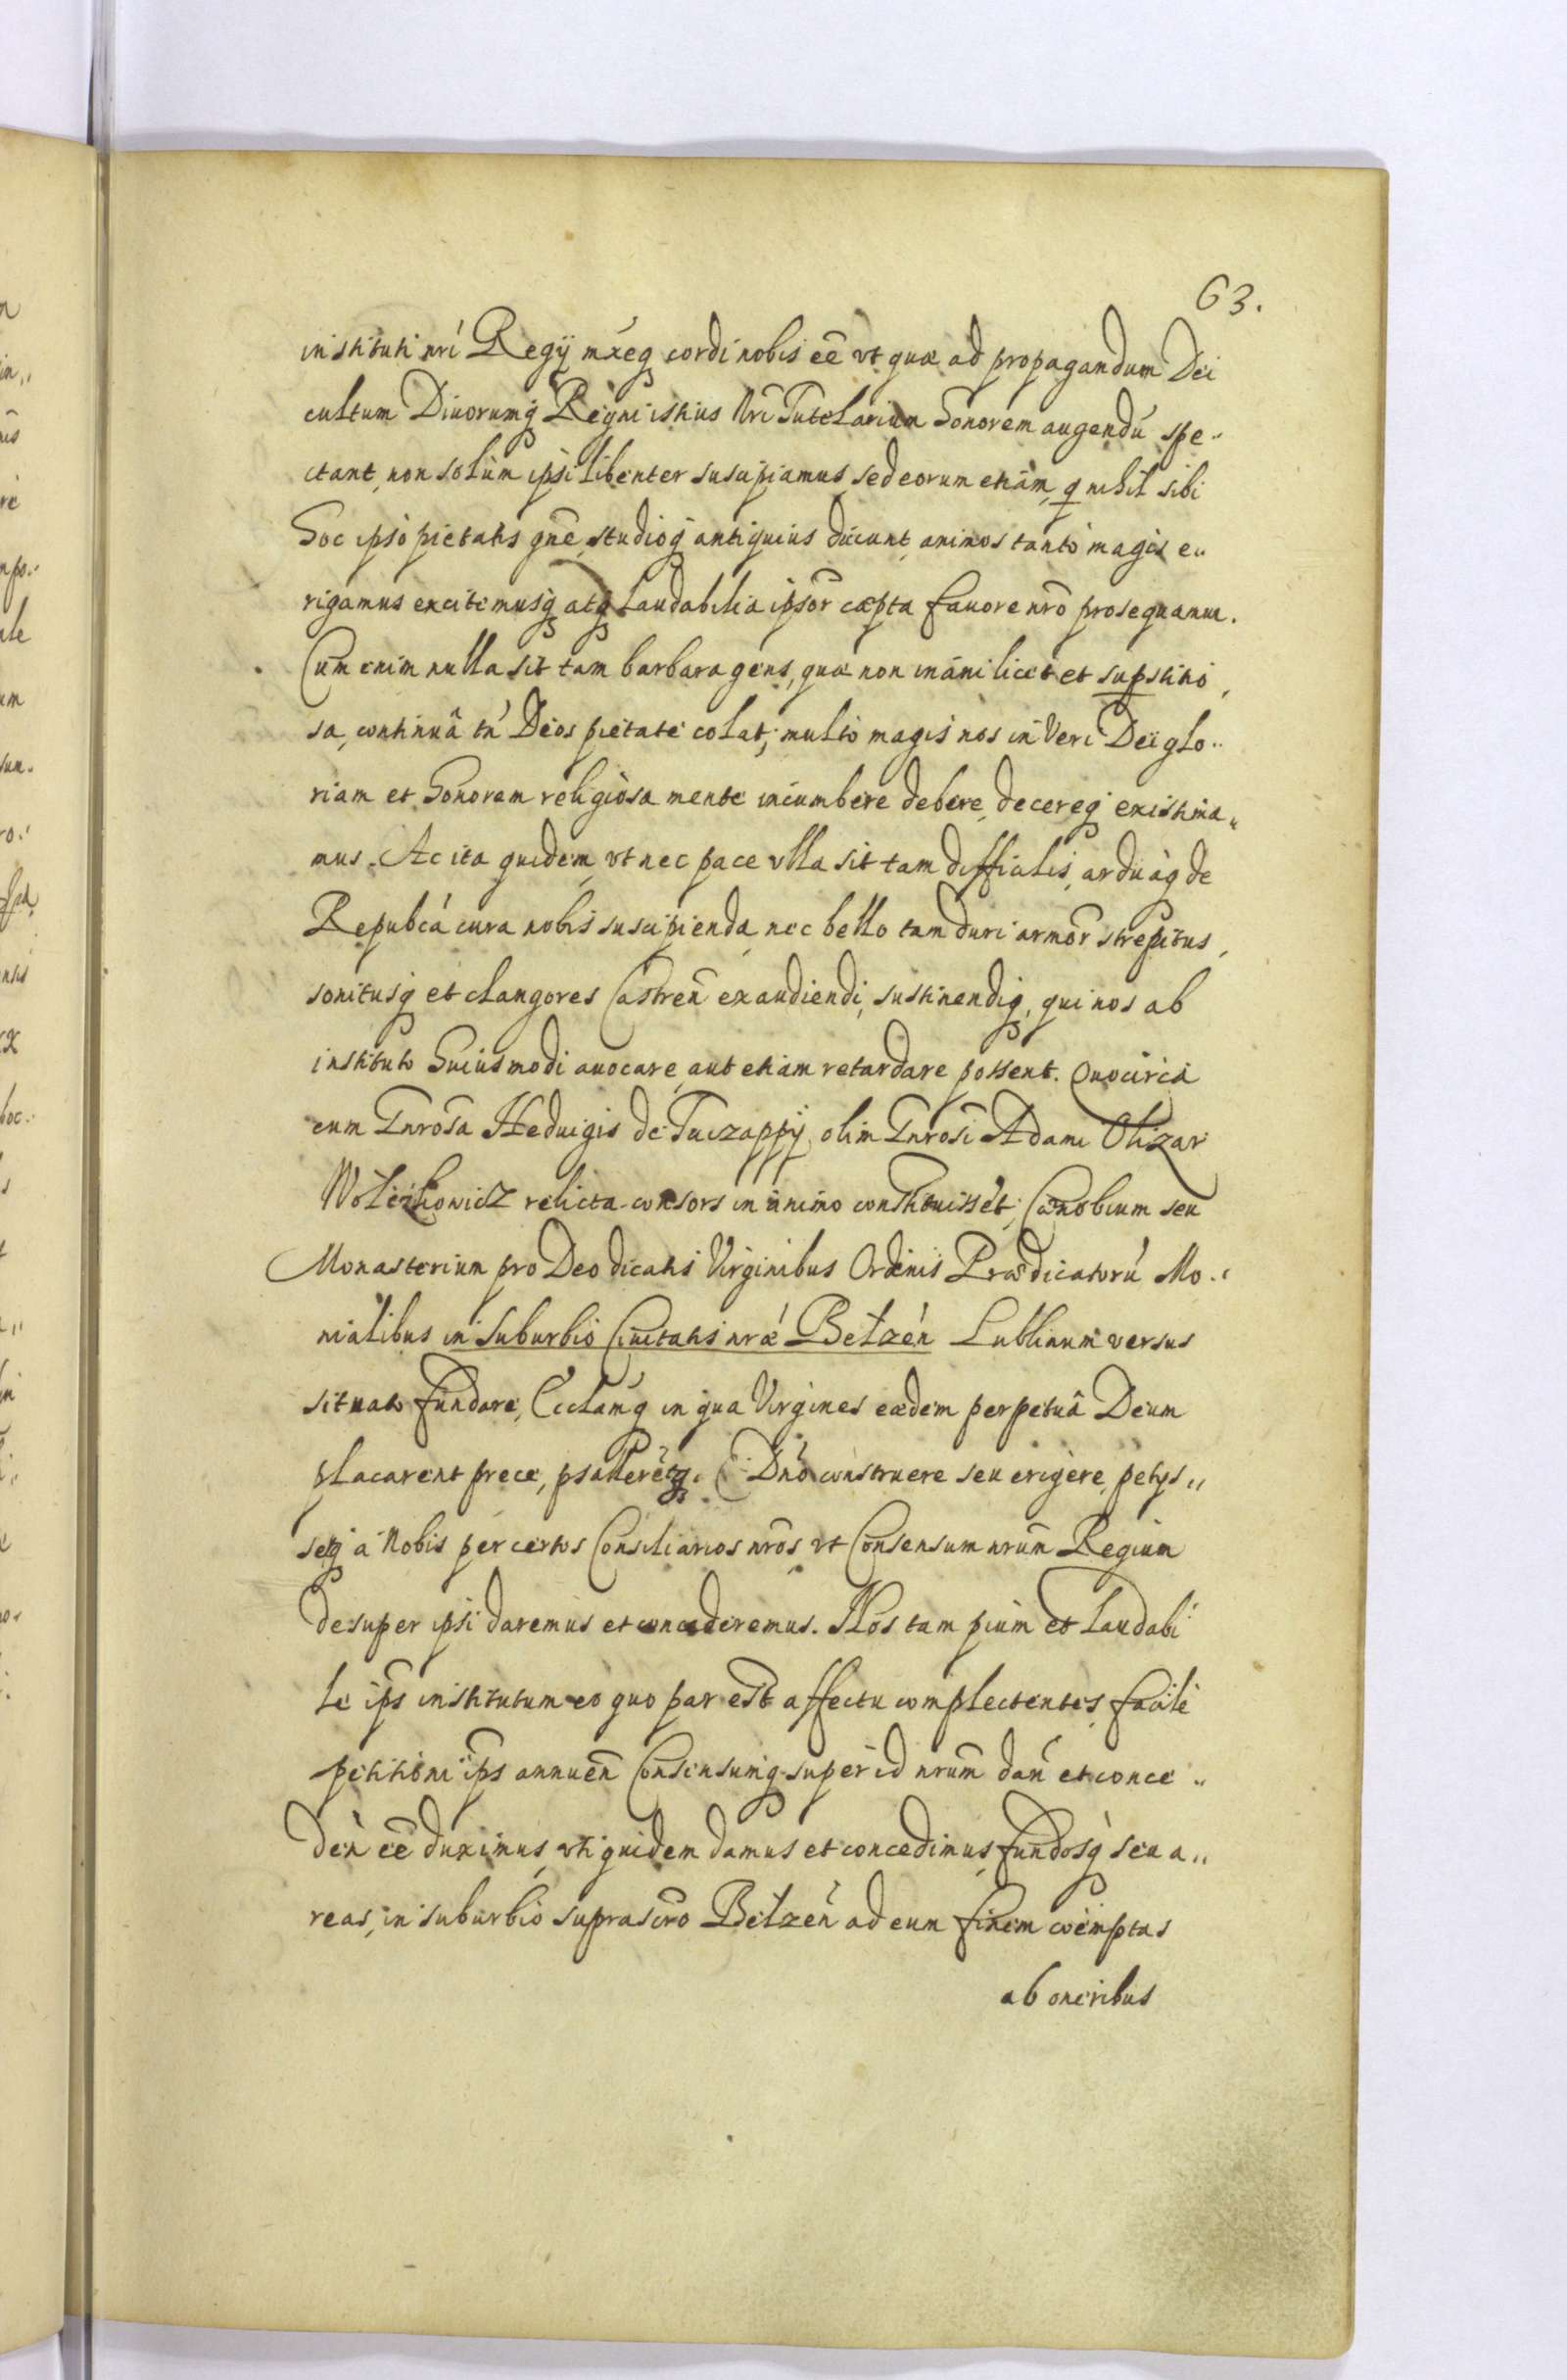 63.
instituti nrí Regÿ mxéq cordi nobis eē vt quæ ad propagandum Dei
cultum Diuorumq Regni istius Nrī Tutelarium Honorem augendú spe„
ctant, non solùm ipsi libenter suscipiamus, sed eorum etiàm, q nihil sibi
Hoc ipsò pietatis gnē, studioq antiquius ducunt, animos tantò magis e„
rigamus excitemusq atq Laudabilia ipsor̄ cæpta fauore nrō prosequamur.
Cum enim nulla sit tam barbara gens, quæ non inani licet et supstitio,
sa, continuâ tń Deos pietate colat; multò magis nos in Veri Dei glo„
riam et Honorem religiosa mente incumbere debere, decereq existima„
mus. Ac ita quidem, vt nec pace vlla sit tam difficilis, arduaq de
Repubcá cura nobis suscipienda, nec bello tam duri armor̄ strepitus,
sonitusq et clangores Castreñ exaudiendi, sustinendiq, qui nos ab
instituto Huiusmodi auocare, aut etiàm retardare possent. Quocircà
cum Gnrosa Heduigis de Tuczappÿ, olim Gnrosi Adami Olizar
Wołczkowicz relicta consors in animo constituisset; Cænobium seu
Monasterium pro Deo dicatis Virginibus Ordinis Prædicatorú Mo„
nialibus in Suburbio Ciuitatis nræ Bełzeń Lublinum versus
situato fundare, Ecclamq in qua Virgines eædem perpetuâ Deum
placarent prece, psallerētq. Dnō construere seu erigere, petijs„
seq à Nobis per certos Consiliarios nrōs, vt Consensum nrum̄ Regium
desuper ipsi daremus et concederemus. Nos tam pium et Laudabi
le ips̄ institutum eo quo par est affectu complectentes, facilè
petitioni ips̄ annueñ Consensumq super id nrum̄ dań et conce„
deń eē duximus, vti quidem damus et concedimus, fundosq seu a„
reas, in suburbio suprascrō Bełzeń ad eum finem coëmptas
ab oneribus